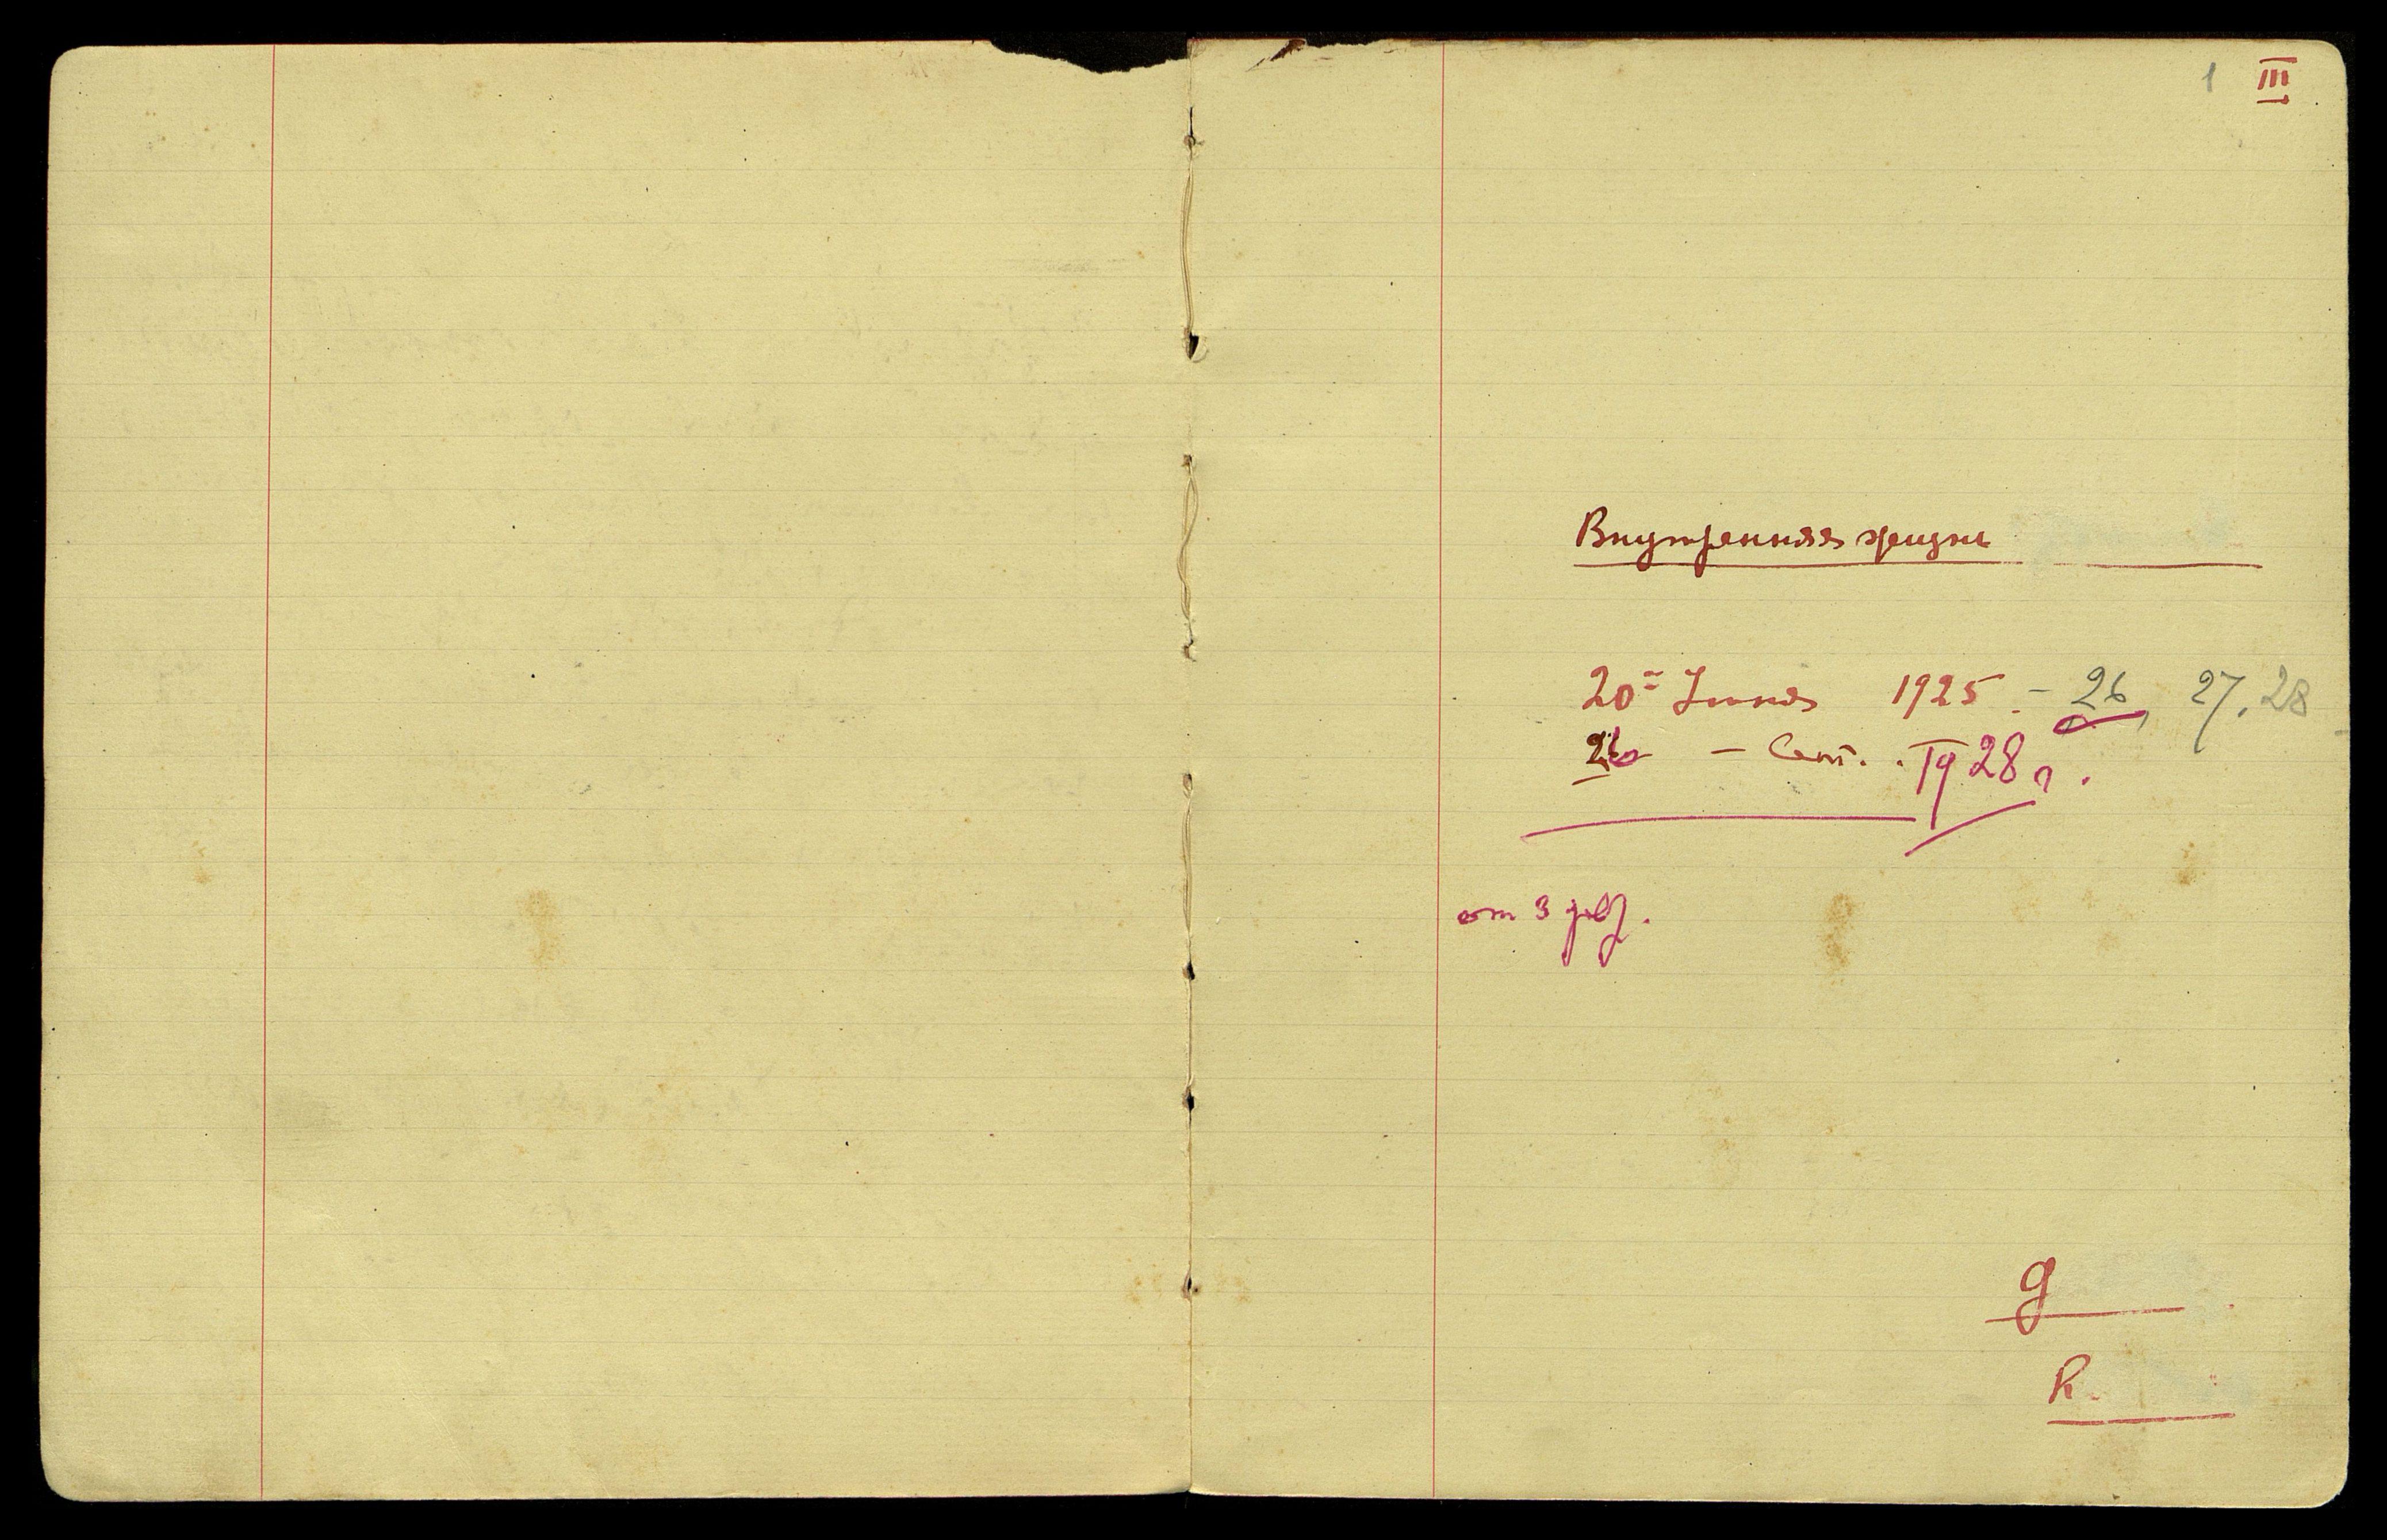 1 III
Внутренняя жизнь
20 Июня 1925 - 26, 27, 28
26 - Сент. 1928 г.
от 3
g
R.